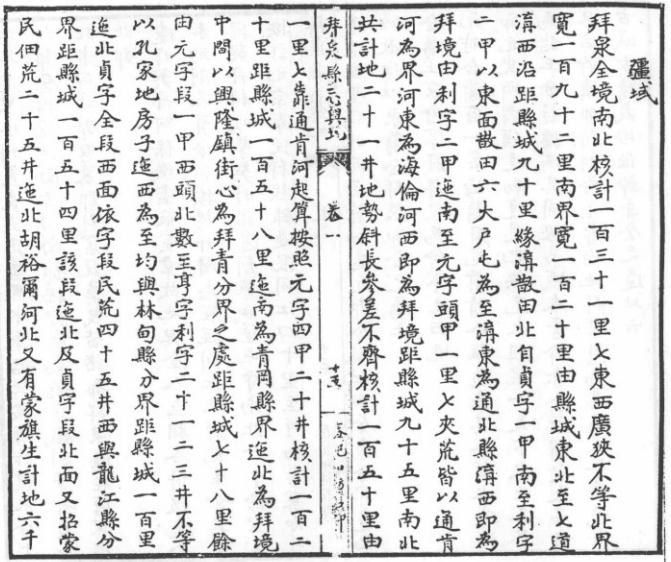 疆域
拜泉全境南北核計一百三十一里七東西廣狹不等北界
寬一百九十二里南界寬一百二十里由縣城東北至七道
溝西沿距縣城九十里緣溝散田北自貞字一甲南至利字
二甲以東面散田六大戶屯為至溝東為通北縣溝西即為
拜境由利字二甲迤南至元字頭甲一里七夾荒皆以通肯
河為界河東為海倫河西即為拜境距縣城九十五里南北
共計地二十一井地勢斜長參差不齊核計一百五十里由
拜泉縣志
卷
一里七靠通肯河起算按照元字四甲二十井核計一百二
十里距縣城一百五十八里迤南為青岡縣界迤北為拜境
中間以興隆鎮街心為拜青分界之處距縣城七十八里餘
由元字段一甲西頭北數至亨字利字二十一二三井不等
以孔家地房子迤西為至均與林甸縣分界距縣城一百里
迤北貞字全段西面依字段民荒四十五井西與龍江縣分
界距縣城一百五十四里該段迤北及貞字段北面又招蒙
民佃荒二十五井迤北胡裕爾河北又有蒙旗生計地六千